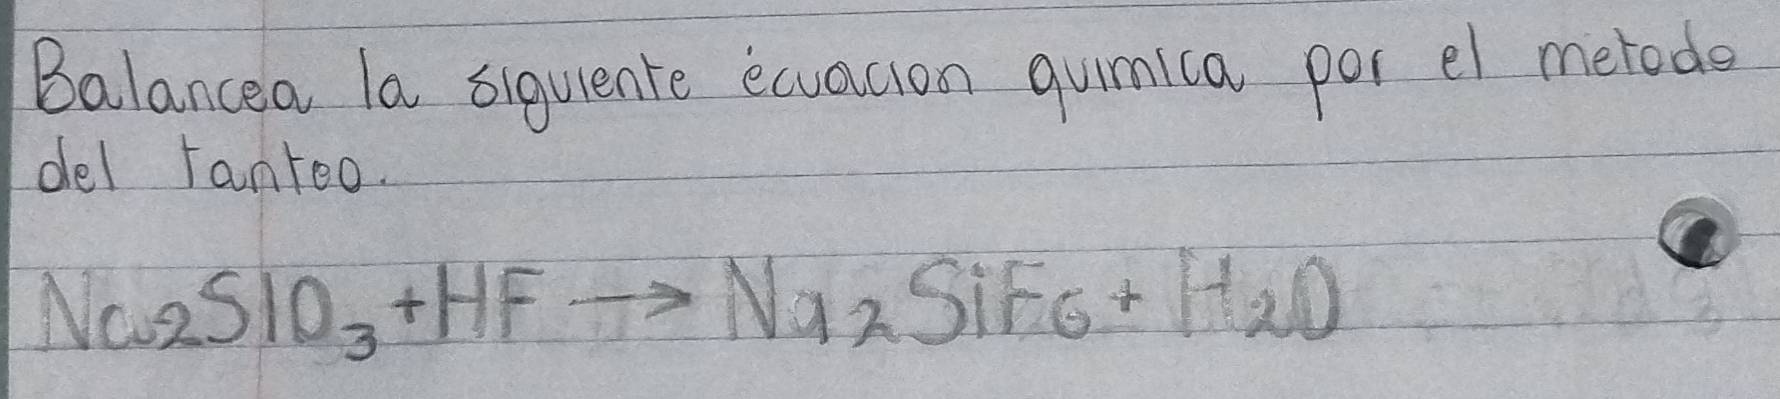 Balancea la siguiente écuacion quimica por el metodo
del tanteo.
Na₂SiO₃ + HF → Na₂SiF₆ + H₂O